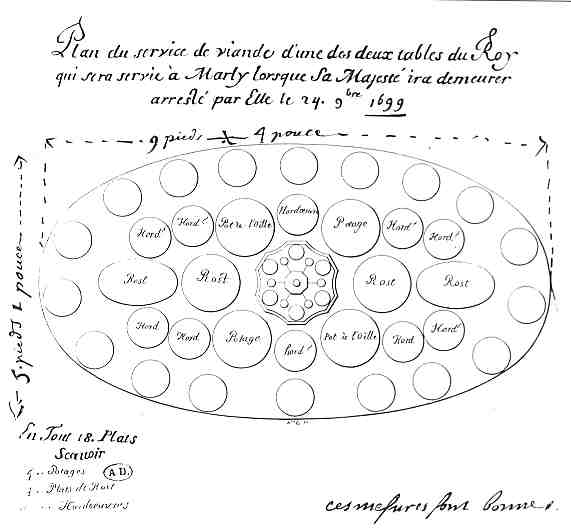 Plan du service de viande d'une des deux tables du Roy
qui sera servie à Marly lorsque Sa Majesté ira demeurer
arresté par Elle le 24. 9bre 1699
9 pieds 4 pouce
5. pieds 2 pouce
Hord.
Hord.
Pot à l'oille
Hordœuvre
Potage
Hord.
Hord.
Rost
Rost
Rost
Rost
Hord
Hord
Potage
hord.
Pot à l'Oille
Hord
Hord.
En Tout 18. Plats
Scavoir
4 .. Potages
A D.
4 .. Plats de Rost
.. Hordœuvres
ces mesures sont bonnes.